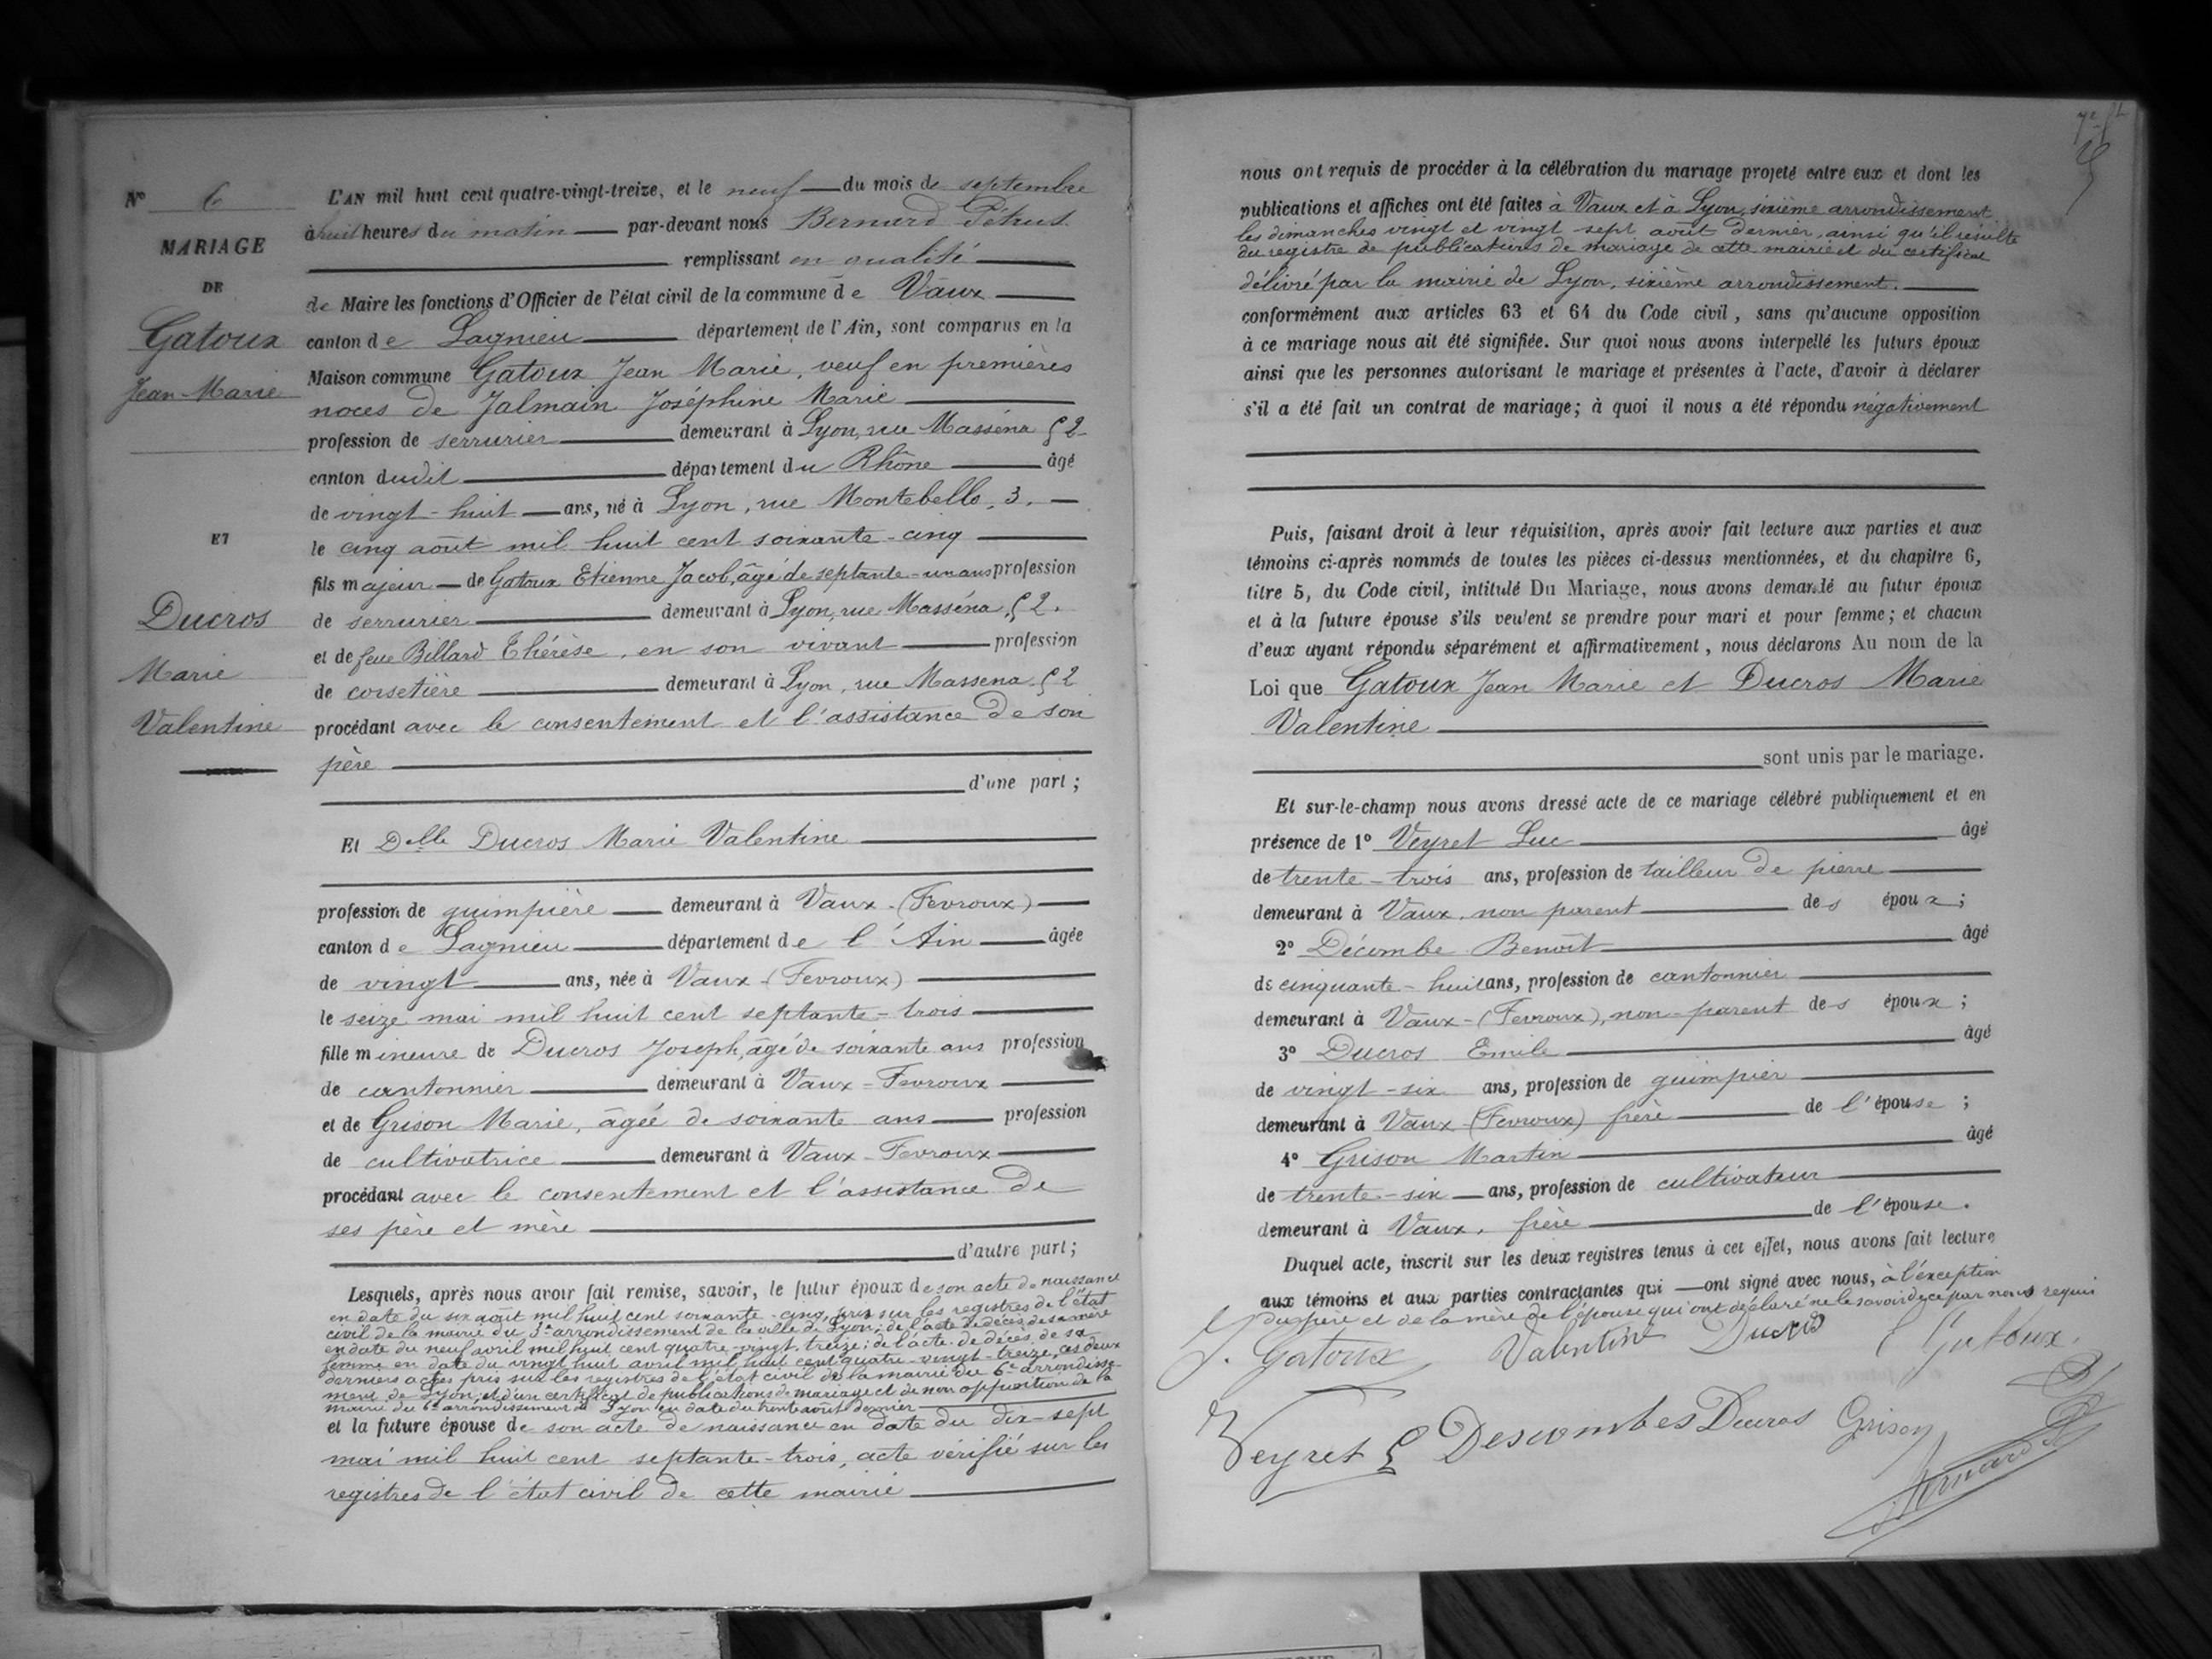 N° 6
MARIAGE
DE
Gatoux
Jean-Marie
ET
Ducros
Marie
Valentine
L'AN mil huit cent quatre-vingt-treize, et le neuf du mois de septembre
à huit heures du matin par-devant nous Bernard Pétrus
remplissant en qualité
de Maire les fonctions d'Officier de l'état civil de la commune de Vaux
canton de Lagnieu département de l'Ain, sont comparus en la
Maison commune Gatoux Jean Marie, veuf en premières
noces de Jalmain Joséphine Marie
profession de serrurier demeurant à Lyon, rue Masséna 52
canton dudit département du Rhône âgé
de vingt-huit ans, né à Lyon, rue Montebello, 3.
le cinq août mil huit cent soixante-cinq
fils majeur de Gatoux Etienne Jacob, âgé de septante-un ans profession
de serrurier demeurant à Lyon, rue Masséna, 52.
et de feue Billard Thérèse, en son vivant profession
de corsetière demeurant à Lyon, rue Massena 52
procédant avec le consentement et l'assistance de son
père
d'une part ;
Et Delle Ducros Marie Valentine
profession de guimpière demeurant à Vaux-(Fevroux)
canton de Lagnieu département de l'Ain âgée
de vingt ans, née à Vaux-(Fevroux)
le seize mai mil huit cent septante-trois
fille mineure de Ducros Joseph, âgé de soixante ans profession
de cantonnier demeurant à Vaux-Fevroux
et de Grison Marie, âgée de soixante ans profession
de cultivatrice demeurant à Vaux-Fevroux
procédant avec le consentement et l'assistance de
ses père et mère
d'autre part ;
Lesquels, après nous avoir fait remise, savoir, le futur époux de son acte de naissance
en date du six août mil huit cent soixante-cinq, pris sur les registres de l'état
civil de la mairie du 3e arrondissement de la ville de Lyon ; de l'acte de décès de sa mère
en date du neuf avril mil huit cent quatre-vingt-treize ; de l'acte de décès de sa
femme en date du vingt huit avril mil huit cent quatre-vingt-treize, ces deux
derniers actes pris sur les registres de l'état civil de la mairie du 6e arrondisse-
ment de Lyon, et d'un certificat de publications de mariage et de non opposition de la
mairie du 6e arrondissement de Lyon en date du trente août dernier
et la future épouse de son acte de naissance en date du dix-sept
mai mil huit cent septante-trois, acte vérifié sur les
registres de l'état civil de cette mairie
nous ont requis de procéder à la célébration du mariage projeté entre eux et dont les
publications et affiches ont été faites à Vaux et à Lyon, sixième arrondissement
les dimanches vingt et vingt-sept août dernier, ainsi qu'il résulte
du registre de publications de mariage de cette mairie et du certificat
délivré par la mairie de Lyon, sixième arrondissement.
conformément aux articles 63 et 64 du Code civil, sans qu'aucune opposition
à ce mariage nous ait été signifiée. Sur quoi nous avons interpellé les futurs époux
ainsi que les personnes autorisant le mariage et présentes à l'acte, d'avoir à déclarer
s'il a été fait un contrat de mariage ; à quoi il nous a été répondu négativement
Puis, faisant droit à leur réquisition, après avoir fait lecture aux parties et aux
témoins ci-après nommés de toutes les pièces ci-dessus mentionnées, et du chapitre 6,
titre 5, du Code civil, intitulé Du Mariage, nous avons demandé au futur époux
et à la future épouse s'ils veulent se prendre pour mari et pour femme ; et chacun
d'eux ayant répondu séparément et affirmativement, nous déclarons Au nom de la
Loi que Gatoux Jean Marie et Ducros Marie
Valentine
sont unis par le mariage.
Et sur-le-champ nous avons dressé acte de ce mariage célébré publiquement et en
présence de 1° Veyret Luc âgé
de trente-trois ans, profession de tailleur de pierre
demeurant à Vaux, non parent des époux ;
2° Décombe Benoît âgé
de cinquante-huit ans, profession de cantonnier
demeurant à Vaux-(Fevroux), non-parent des époux ;
3° Ducros Emile âgé
de vingt-six ans, profession de guimpier
demeurant à Vaux-(Fevroux) frère de l'épouse ;
4° Grison Martin âgé
de trente-six ans, profession de cultivateur
demeurant à Vaux, frère de l'épouse.
Duquel acte, inscrit sur les deux registres tenus à cet effet, nous avons fait lecture
aux témoins et aux parties contractantes qui ont signé avec nous, à l'exception
du père et de la mère de l'épouse qui ont déclaré ne le savoir de ce par nous requis
J. Gatoux Valentine Ducros E Gatoux
Veyret L Descombes Ducros Grison
Bernard